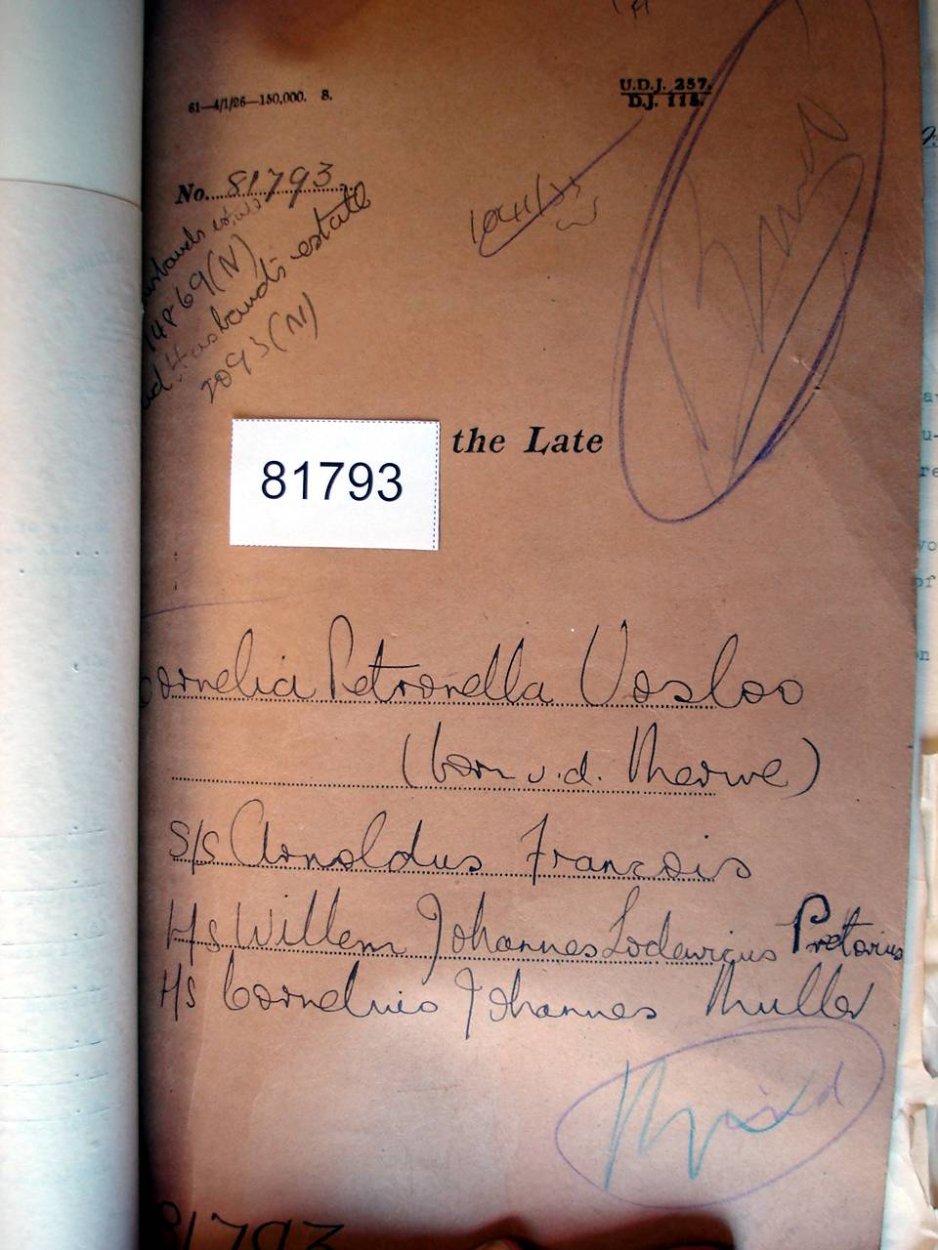 61—4/1/26—150,000. S.
U.D.J. 257.
D.J. 118.
No. 81793
14869(N)
Husband's estate
2093(N)
the Late
81793
Cornelia Petronella Vosloo
(born v.d. Merwe)
S/S Arnoldus Francois
H/S Willem Johannes Lodewicus Pretorius
H/S Cornelius Johannes Muller
81793